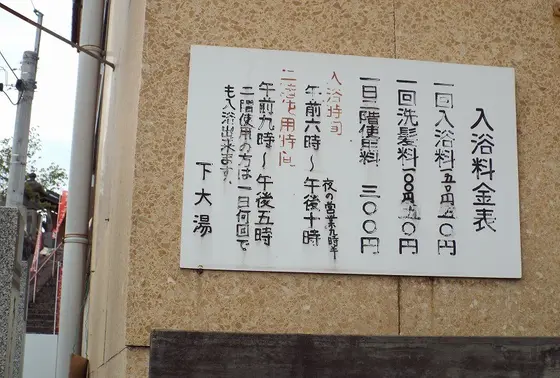 入浴料金表
一回入浴料 一五〇円
一回洗髪料 一〇〇円
一日二階使用料 三〇〇円
入浴時間
午前六時～午後十時
夜の営業九時半
二階使用時間
午前九時～午後五時
二階使用の方は一日何回で
も入浴出来ます。
下大湯